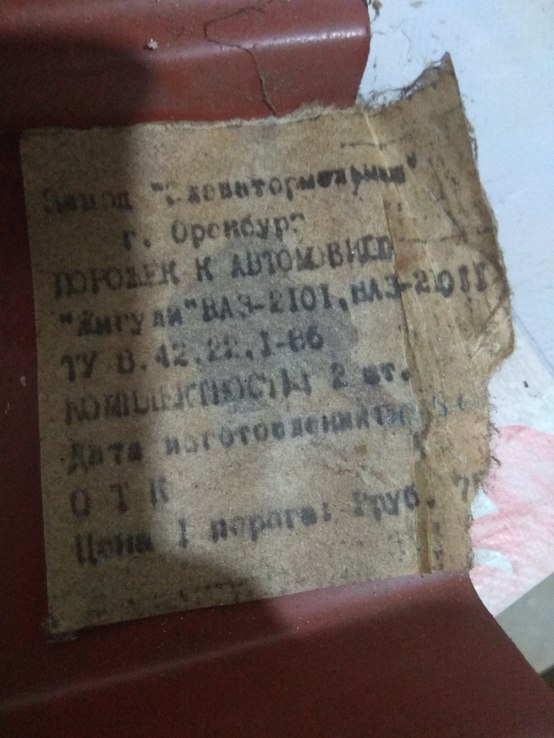 Завод
г. Оренбург
ПОРОЖЕК К АВТОМОБИЛЮ
"Жигули" ВАЗ-2101, ВАЗ-21011
ТУ 8.42.22.1-86
КОМПЛЕКТНОСТЬ: 2 шт.
Дата изготовления
О Т К
Цена 1 порога: руб.